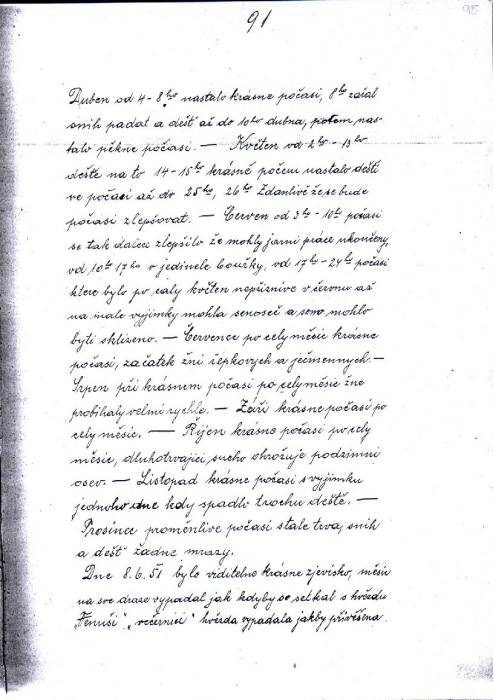 91
95
Duben od 4 - 8ho nastalo krásne počasi, 8ho začal
snih padat a dešť až do 10ho dubna, potem nas-
talo pěkne počasi. — Květen od 2ho - 13ho
deště na to 14 - 15ho krásné počem nastalo deští
ve počasi až do 25ho, 26ho Zdanlivě že se bude
počasi zlepšovat. — Červen od 3ho - 10ho počasi
se tak dalece zlepšilo že mohly jarni práce ukončeny,
od 10ho 17ho v jedinele bouřky, od 17ho - 24ho počasi
ktere bylo po caly květen nepřiznive v červnu až
na male vyjimky mohla senoseč a seno mohlo
byti sklizeno. — Července po cely měsic krásne
počasi, začatek žni řepkovych a ječmennych. —
Srpen při krásnem počasi po cely měsic žne
probihaly velmi rychle. — Záři krásne počasi po
cely měsic. — Řijen krásne počasi po cely
měsic, dluhotrvajici sucho ohrožuje podzimni
osev. — Listopad krásne počasi s vyjimku
jednoho dne kdy spadlo trochu deště. —
Prosinec proměnlive počasi stale trva, snih
a dešť žadne mrazy.
Dne 8.6.51 bylo viditelno krásne zjevisko, měsic
na sve draze vypadal jak kdyby se setkal s hvězdu
„Venuši" „večernici" hvězda vypadala jakby přivěšena.